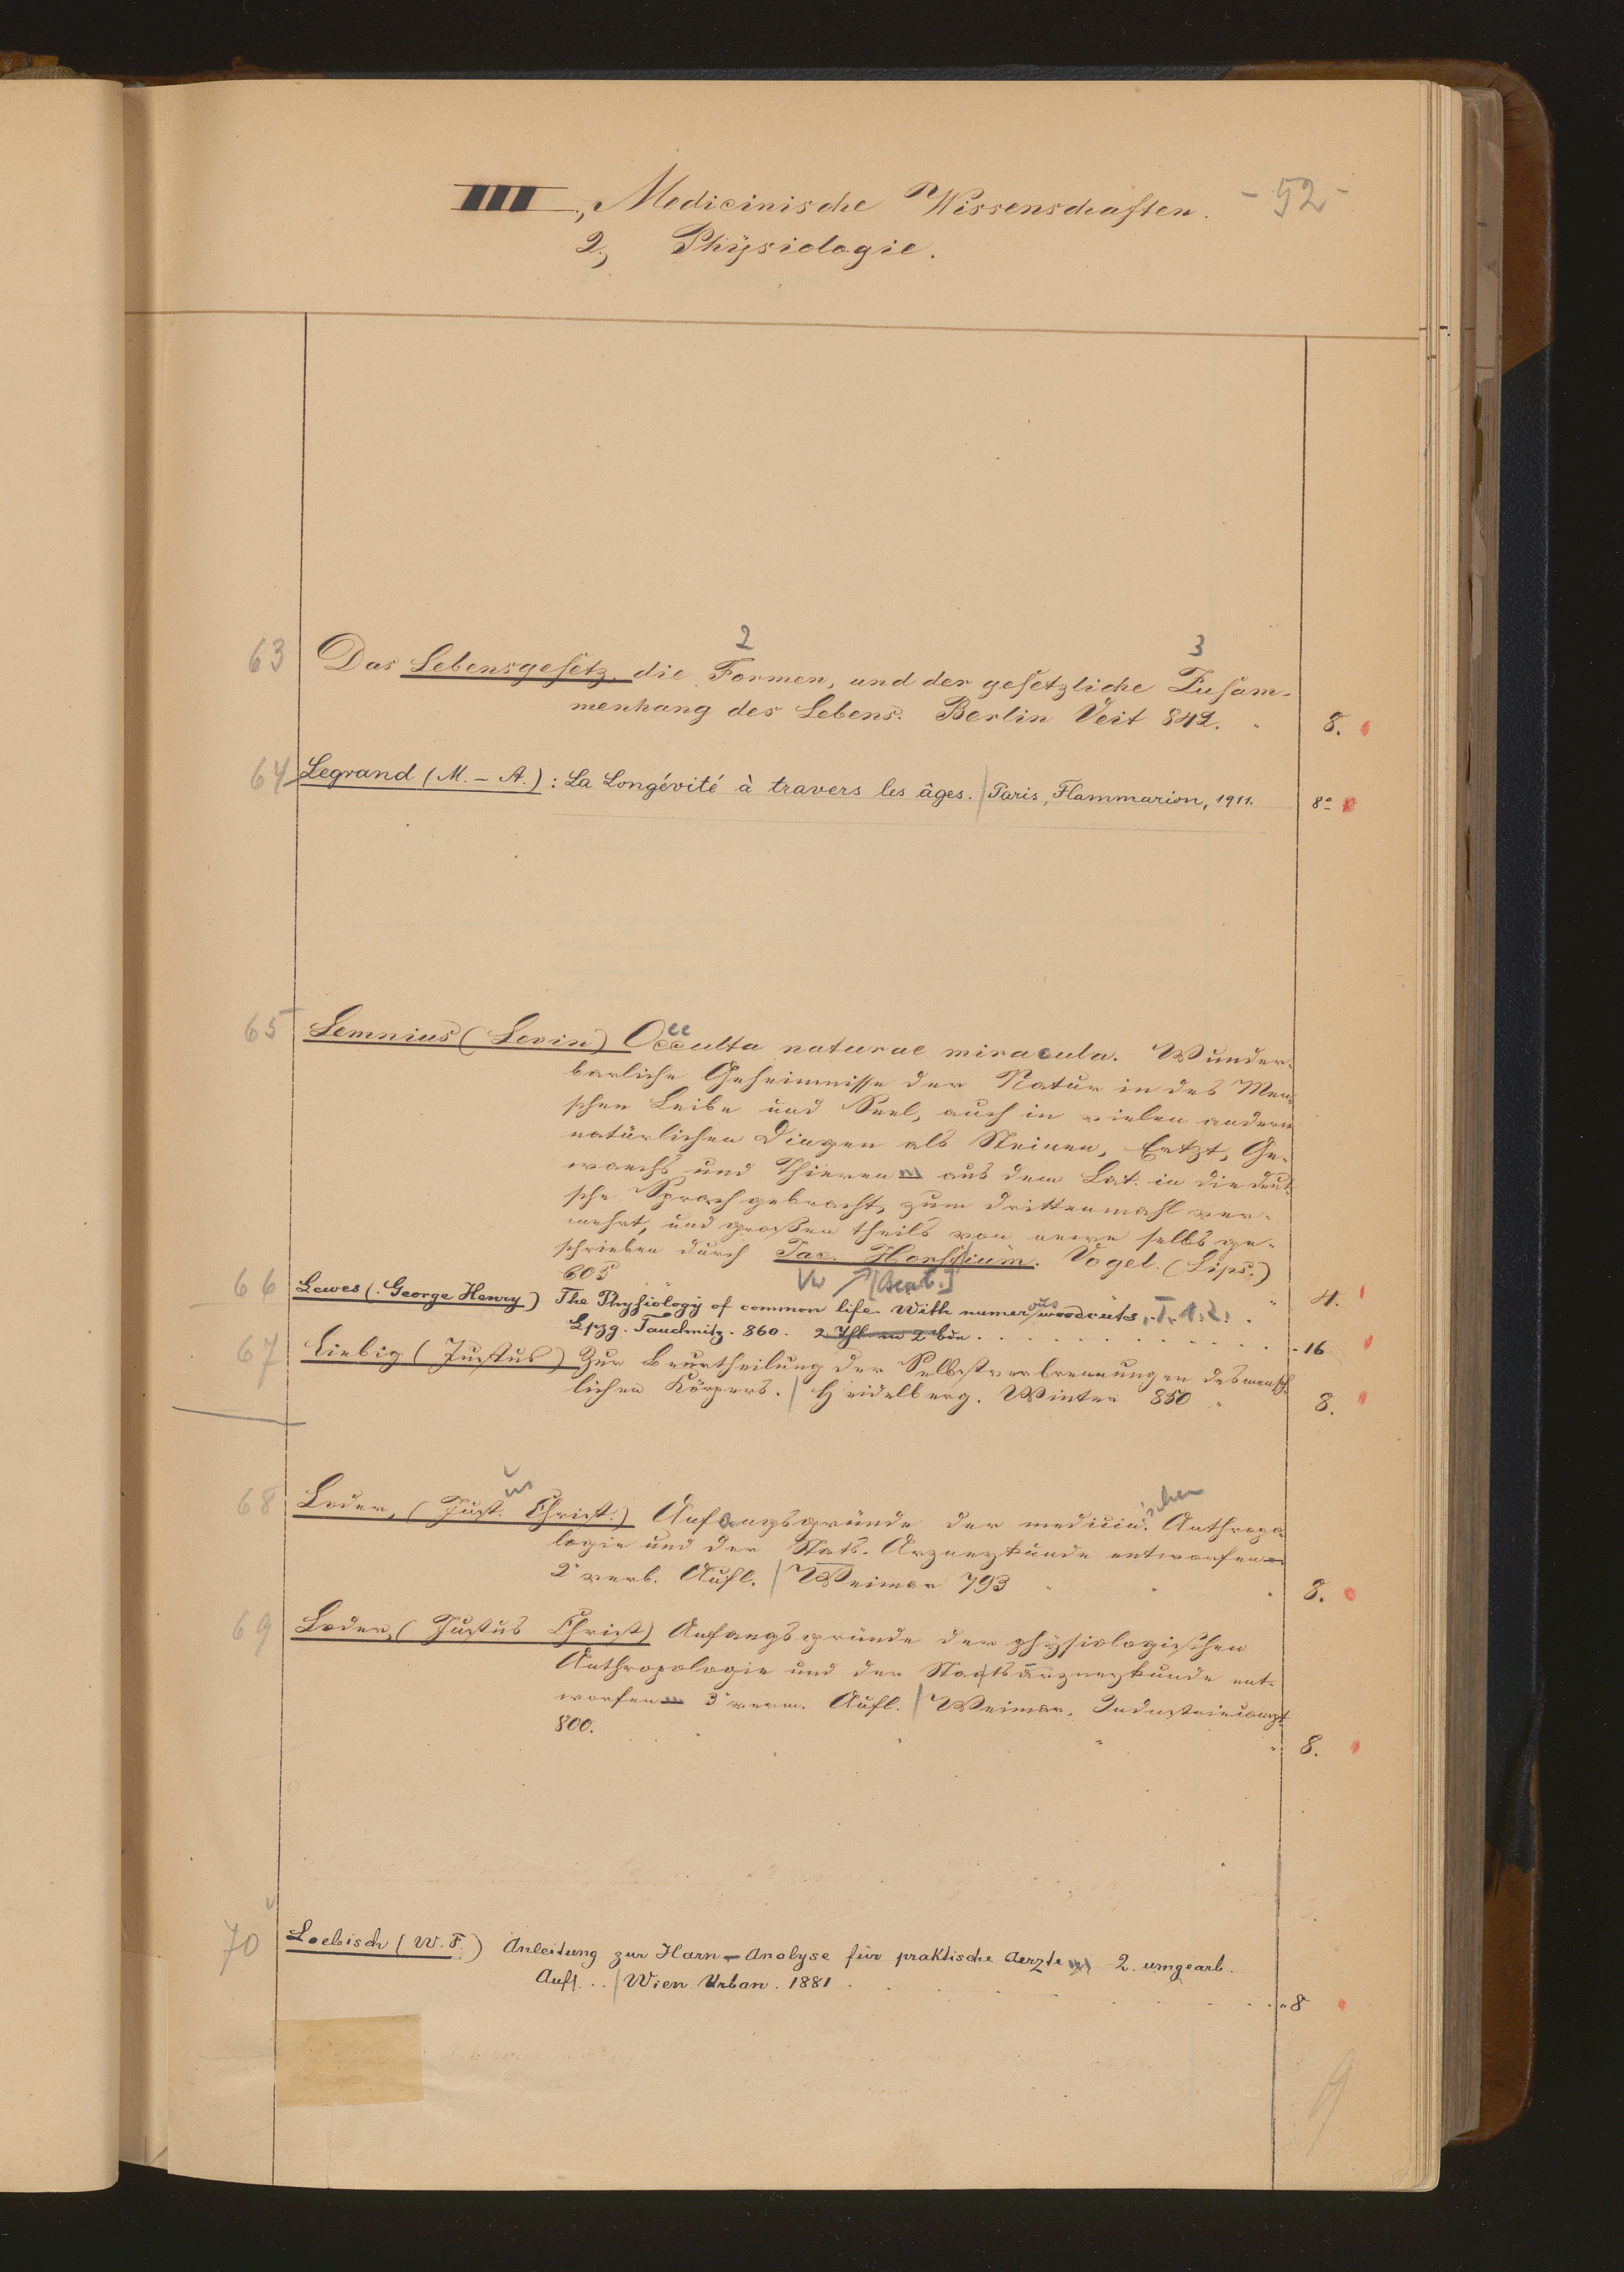 III., Medicinische Wissenschaften. - 52 -
2., Physiologie.
2 3
63 Das Lebensgesetz, die Formen, und der gesetzliche Zusam-
menhang des Lebens. Berlin Veit 842. 8.
64 Legrand (M. - A.): La Longévité à travers les âges. | Paris, Flammarion, 1911. 8º
65 Lemnius (Levin) Occulta naturae miracula. Wunder-
barliche Geheimnisse der Natur in des Men-
schen Leibe und Seel, auch in vielen andern
natürlichen Dingen als Steinen, Ertzt, Ge-
waechs und Thieren aus dem Lat. in die deut-
sche Sprach gebracht, zum drittenmahl ver-
mehrt, und großen theils von newe selbs ge-
schrieben durch Jac. Horstium. Vogel. (Lips.)
605 Vw [Bearb.] 4.
66 Lewes (George Henry) The Physiology of common life. With numerous woodcuts. T. 1. 2.
Lpzg. Tauchnitz. 860. 2 Thl in 2 Bdn 16
67 Liebig (Justus) Zur Beurtheilung der Selbstverbrennungen des mensch-
lichen Körpers. | Heidelberg. Winter 850 8.
68 Loder, (Just.us Christ.) Anfangsgründe der medicin.ischen Anthropo-
logie und der Stats-Arzneykunde entworfen
2e verb. Aufl. | Weimar 793 8.
69 Loder, (Justus Christ) Anfangsgründe der physiologischen
Anthropologie und der Staatsarzneykunde ent-
worfen 3e verm. Aufl. | Weimar, Industriecompt
800. 8.
70 Loebisch (W. F.) Anleitung zur Harn-Analyse für praktische Aerzte 2. umgearb.
Aufl. | Wien Urban. 1881 8
9